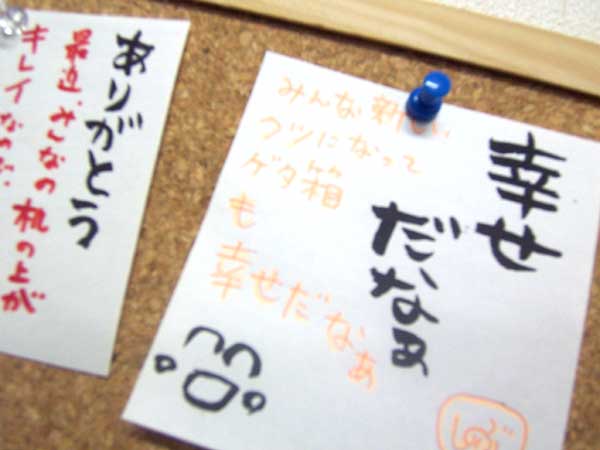 ありがとう
最近、みんなの机の上が
キレイなので、
幸せ
だなぁ
みんな新しい
クツになって
ゲタ箱
も
幸せだなぁ